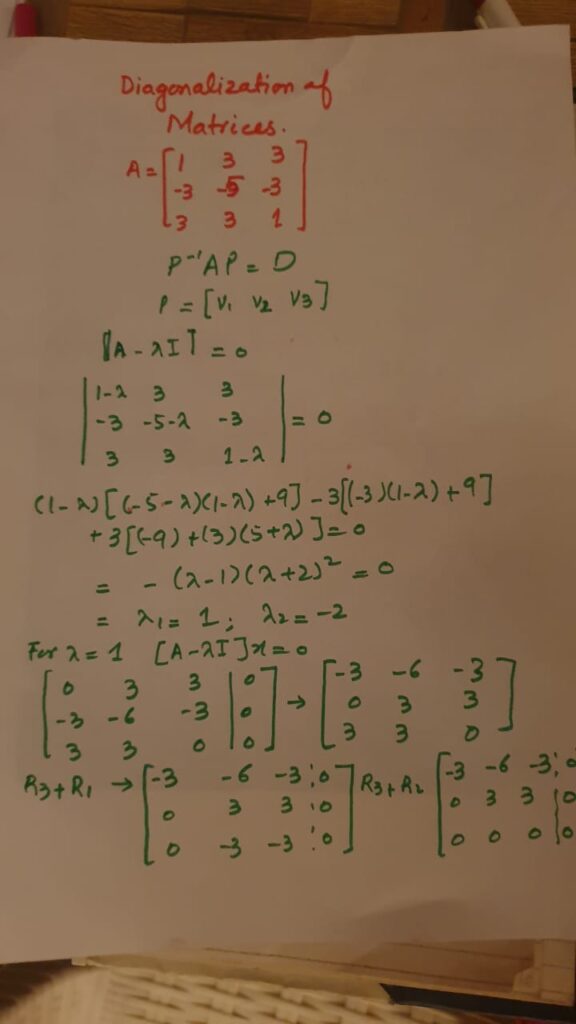 Diagonalization of
Matrices.
A = [1 3 3
-3 -5 -3
3 3 1]
P⁻¹AP = D
P = [V₁ V₂ V₃]
|A - λI| = 0
|1-λ 3 3
-3 -5-λ -3
3 3 1-λ| = 0
(1-λ)[(-5-λ)(1-λ)+9] - 3[(-3)(1-λ)+9]
+ 3[(-9)+(3)(5+λ)] = 0
= - (λ-1)(λ+2)² = 0
= λ₁ = 1; λ₂ = -2
For λ = 1 [A-λI]x = 0
[0 3 3 | 0 → [-3 -6 -3
-3 -6 -3 | 0 0 3 3
3 3 0 | 0] 3 3 0]
R₃+R₁ → [-3 -6 -3 ¦ 0 R₃+R₂ [-3 -6 -3 ¦ 0
0 3 3 ¦ 0 0 3 3 | 0
0 -3 -3 ¦ 0] 0 0 0 | 0